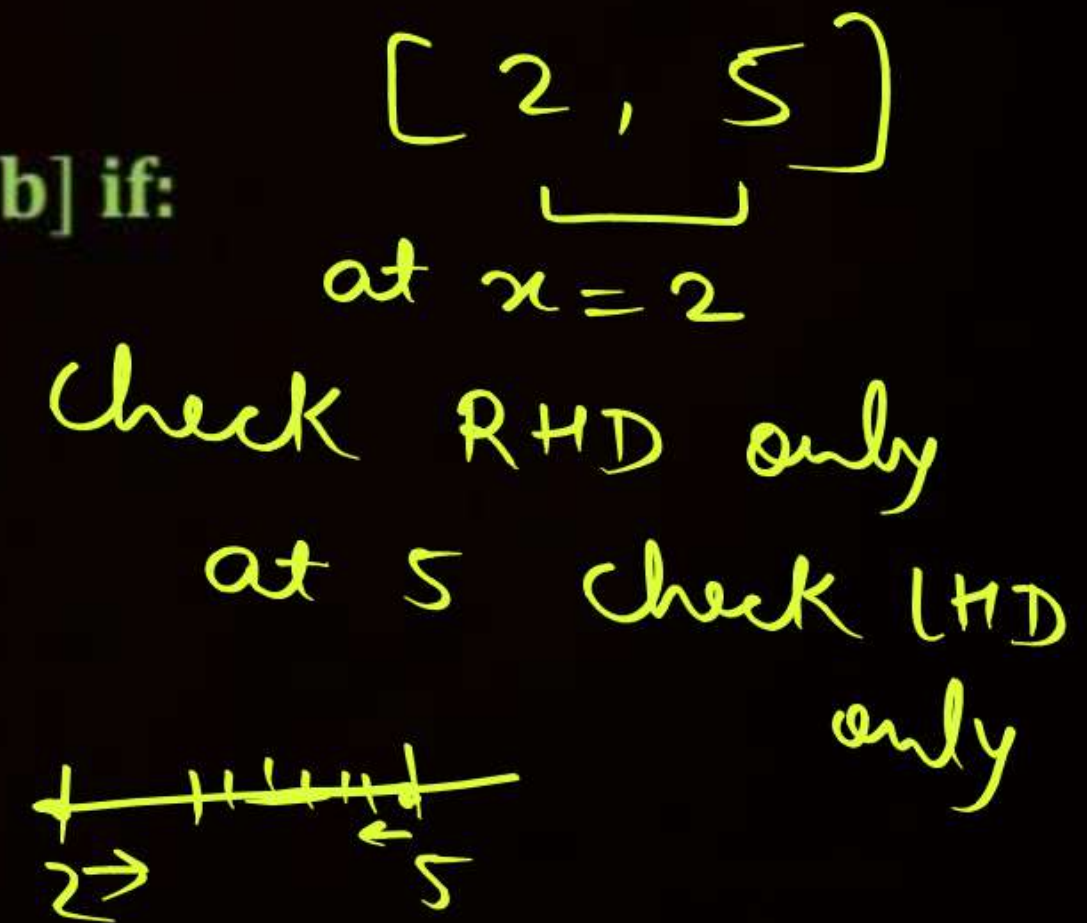 [2, 5]
b] if:
at x = 2
Check RHD only
at 5 Check LHD
only
2→ ← 5